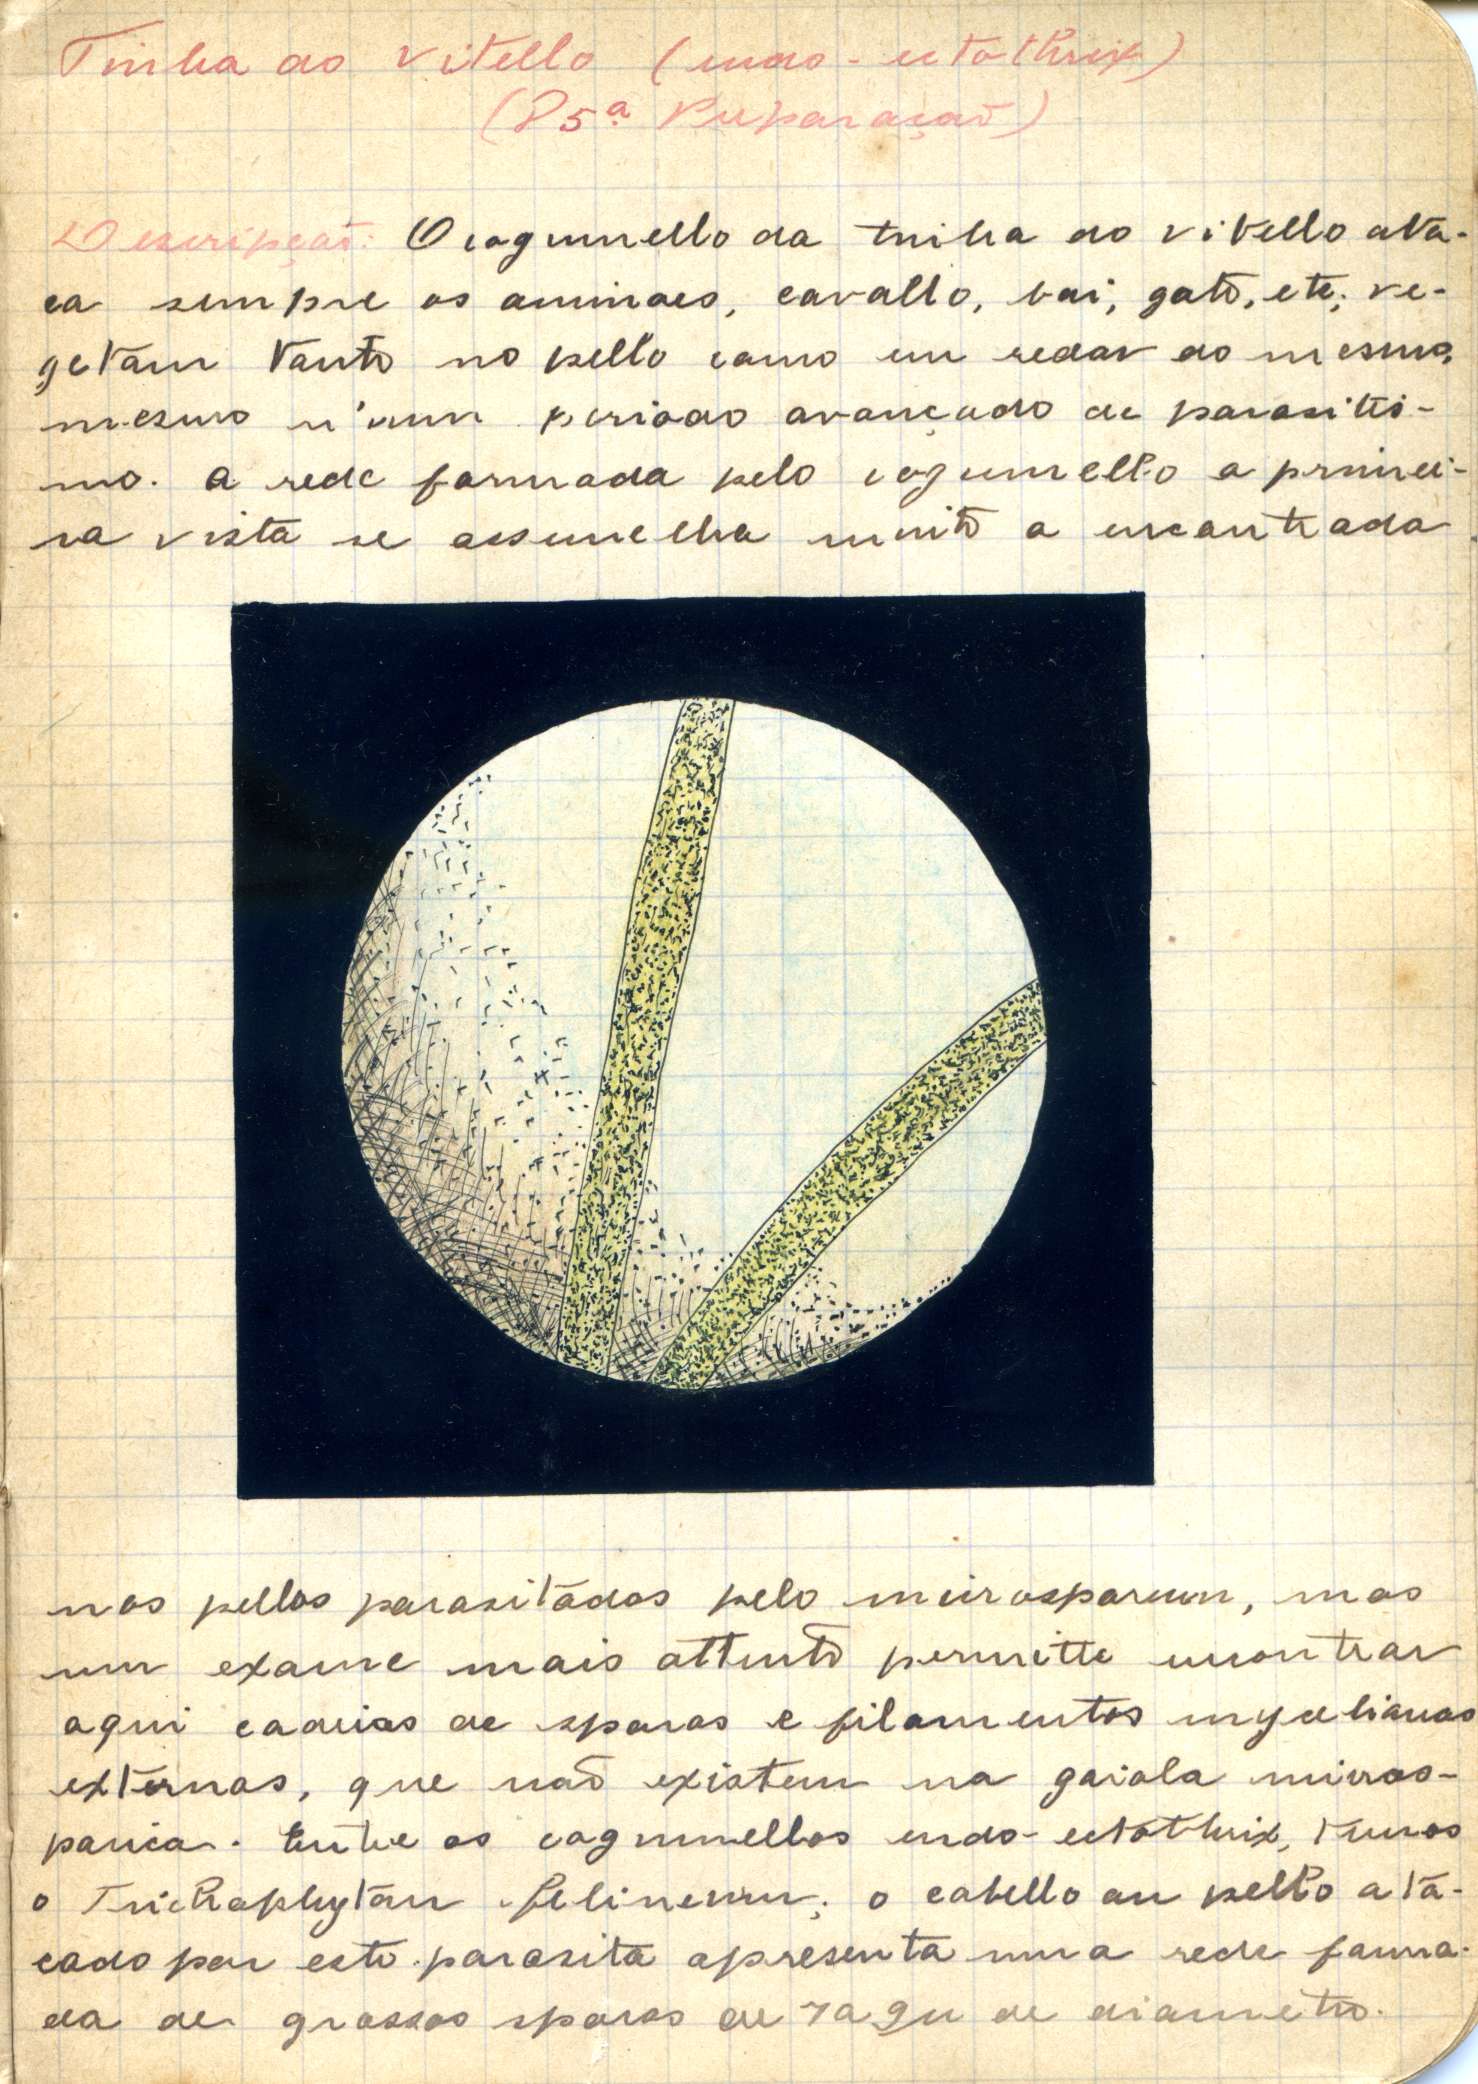 Tinha do Vitello (endo-ectothrix)
(25ª Preparação)
Descripção: O cogumello da tinha do vitello ata-
ca sempre os animaes, cavallo, boi, gato, etc; ve-
getam tanto no pello como em redor do mesmo,
mesmo n'um periodo avançado de parasitis-
mo. A rede formada pelo cogumello a primei-
ra vista se assemelha muito a encontrada
nos pellos parasitados pelo microsporum, mas
um exame mais attento permitte encontrar
aqui cadeias de sporos e filamentos mycelianos
externos, que não existem na gaiola micros-
porica. Entre os cogumellos endo-ectothrix, temos
o Trichophyton felineum; o cabello ou pello ata-
cado por este parasita apresenta uma rede forma-
da de grossos sporos de 7 a 9 u de diametro.